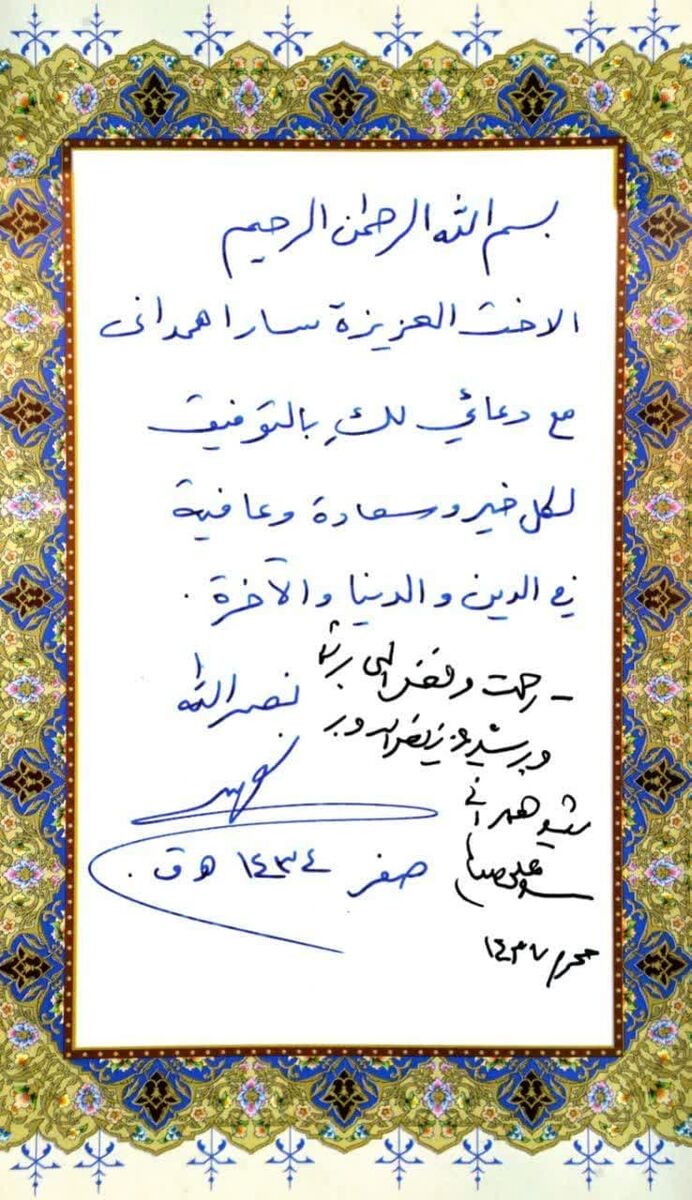 بسم الله الرحمٰن الرحيم
الاخت العزيزة سارا همدانی
مع دعائي لكِ بالتوفيق
لكل خير وسعادة وعافية
في الدين والدنيا والآخرة .
نصر الله
صفر ١٤٣٤ هـ ق .
ـ رحمت و فضل الهی بر شما
و بر شهید عزیز نصرالله و بر
شهید همدانی
سید علی
محرم ١٤٣٧